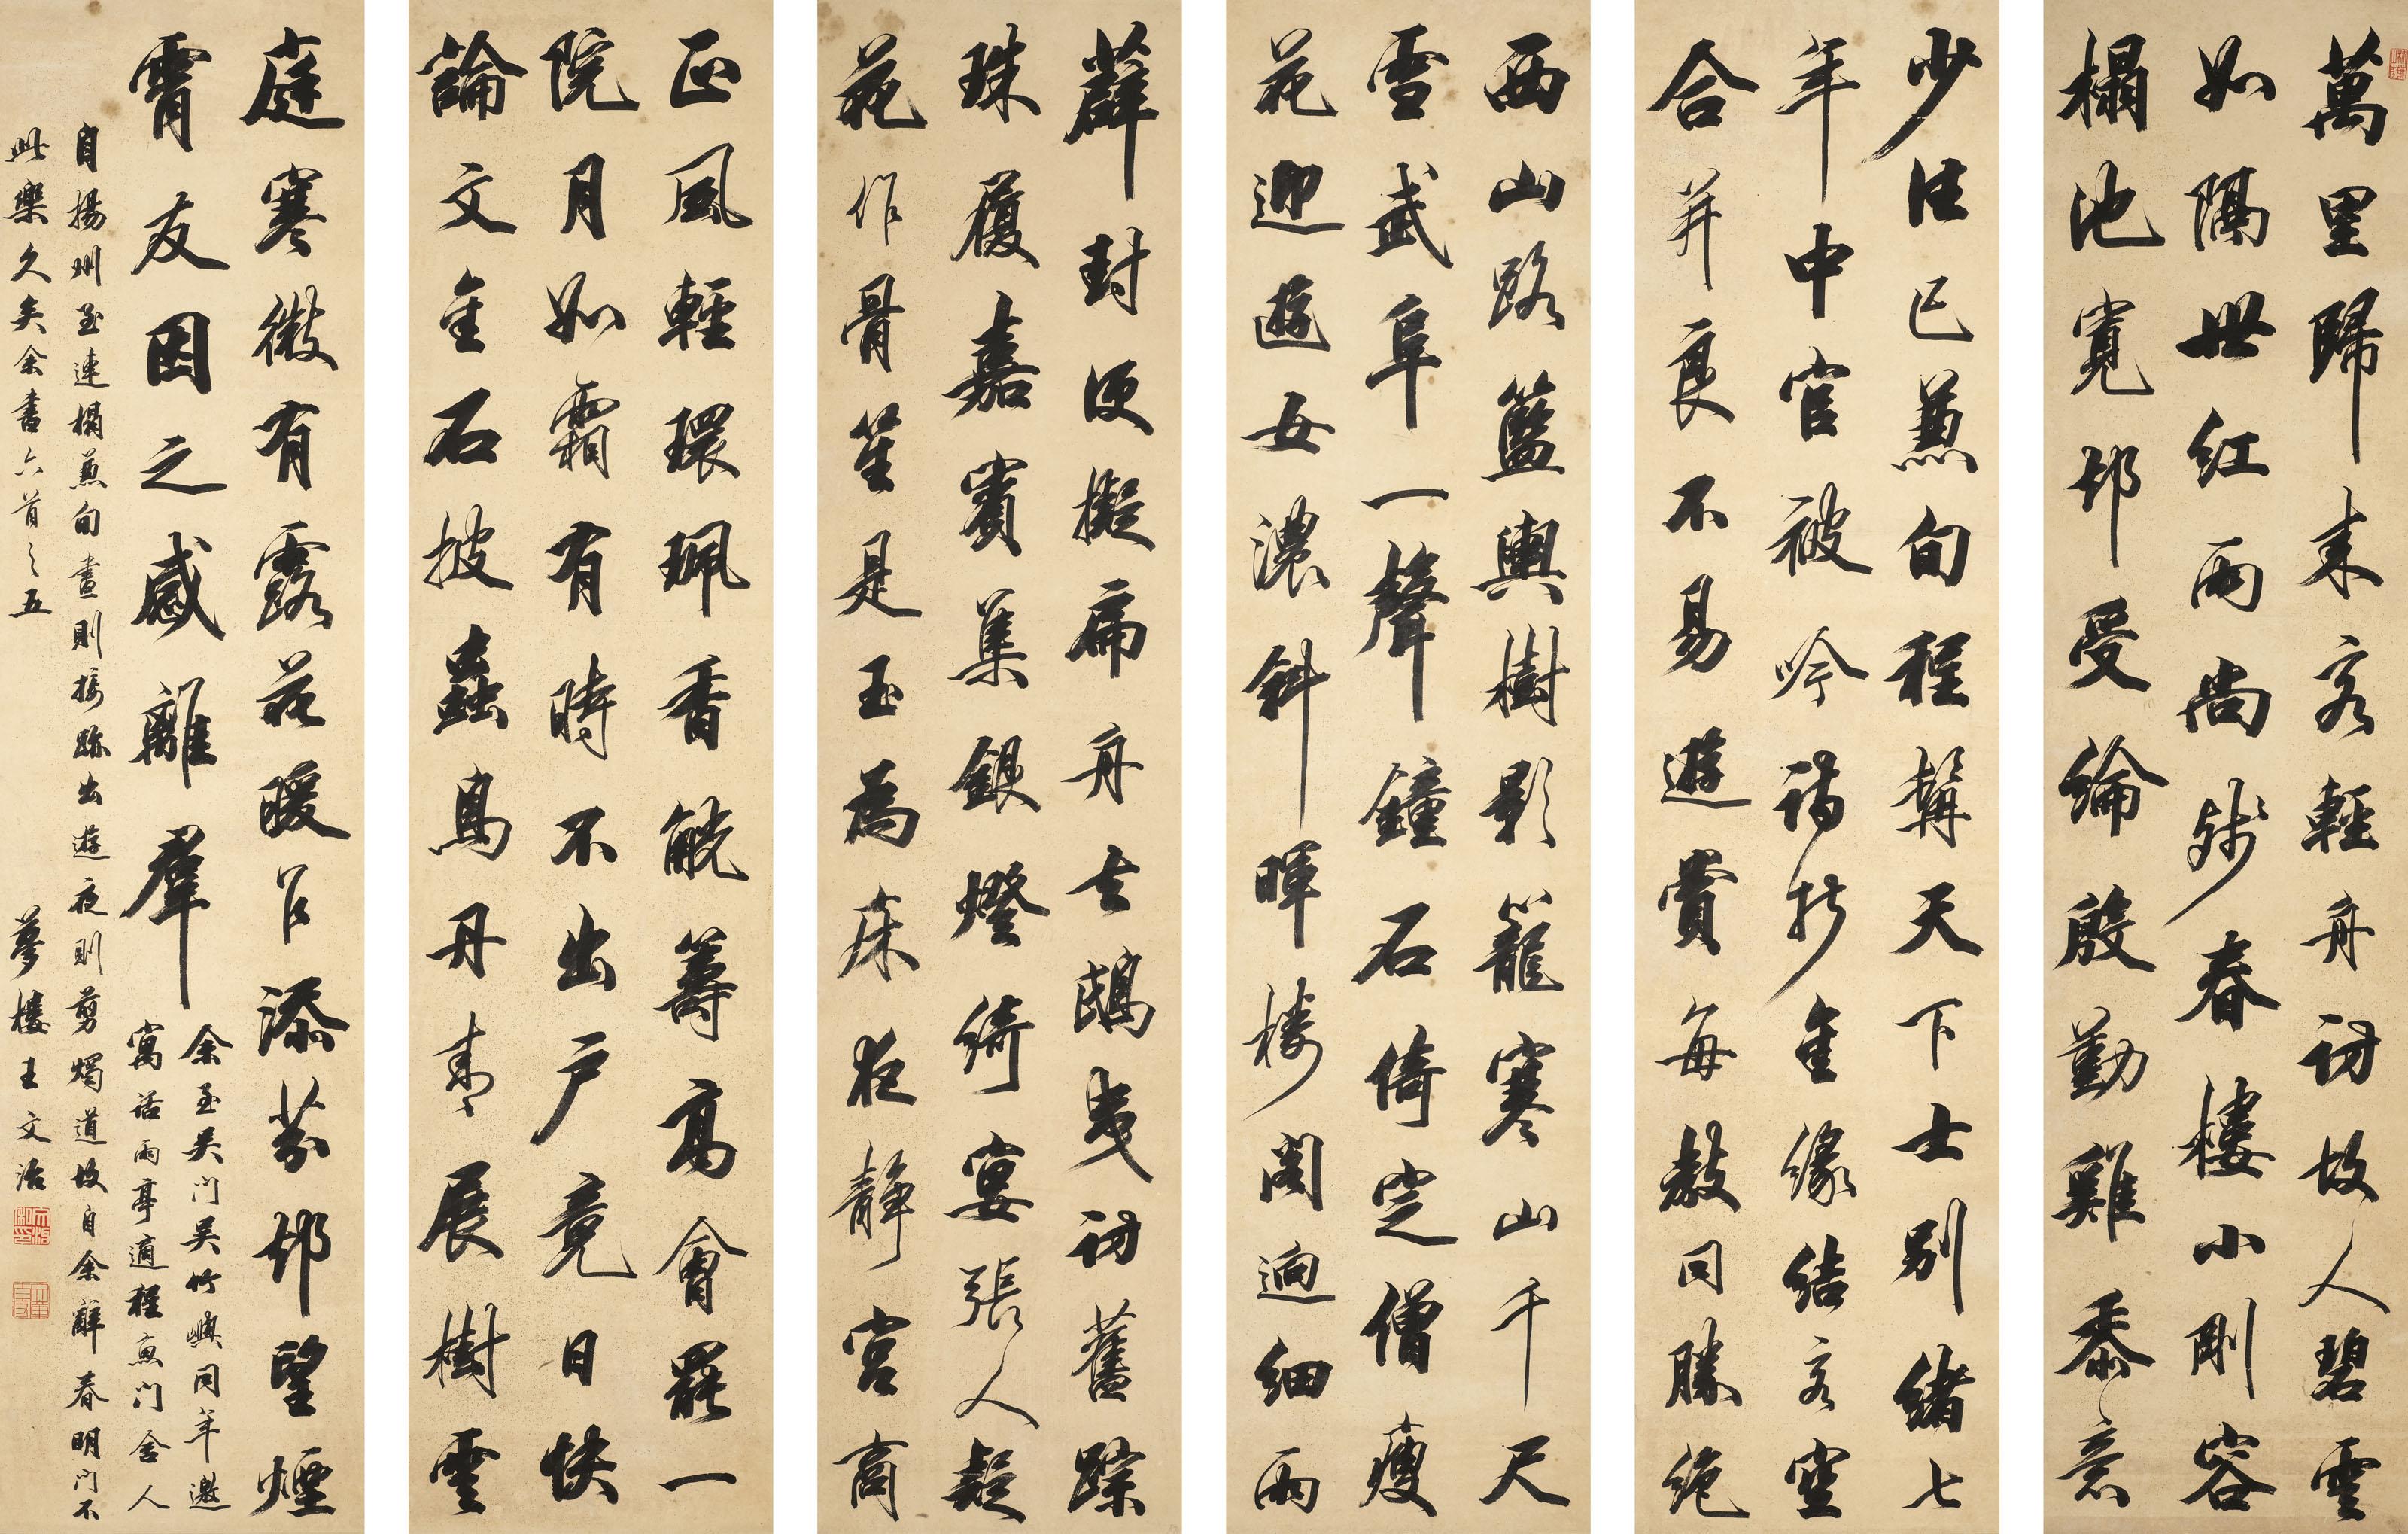 萬里歸來客輕舟訪故人碧雲
如隔世紅雨尚殘春樓小剛容
榻池寬邨受綸殷勤雞黍意
少住已兼旬程龔天下士別緒七
年中官被吟詩折金緣結客空
合并良不易遊賞每教同勝絕
西山路籃輿樹影籠寒山千尺
雪武阜一聲鐘石倚定僧瘦
花迎遊女濃斜暉樓閣迥細雨
薜封便擬扁舟去鴟夷訪舊蹤
珠履嘉賓集銀燈綺宴張人疑
花作骨笙是玉為床夜靜宮商
正風輕環珮香觥籌高會罷一
院月如霜有時不出戶竟日快
論文金石披蟲鳥丹青展樹雲
庭寒微有露花暖乍添芬邨望煙
霄友因之感離群
余至吳門吳竹嶼同年邀
寓話雨亭適程魚門舍人
自揚州至連榻兼旬晝則接跡出遊夜則剪燭道故自余辭春明門不
此樂久矣余書六首之五
夢樓王文治